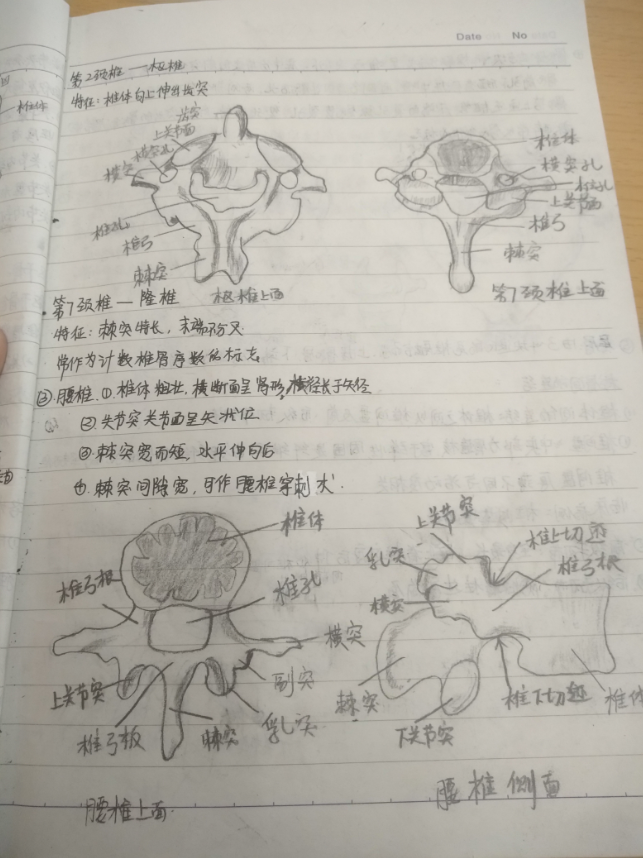 Date No
椎体
第2颈椎—枢椎
特征：椎体向上伸出齿突
齿突
上关节面
横突孔
横突
椎孔
椎弓
棘突
枢椎上面
椎体
横突孔
椎孔
上关节面
椎弓
棘突
第7颈椎上面
第7颈椎—隆椎
特征：棘突特长，末端不分叉
常作为计数椎骨序数的标志
③腰椎.①椎体粗壮，横断面呈肾形，横径长于矢径
②关节突关节面呈矢状位
③棘突宽而短，水平伸向后
④.棘突间隙宽，可作腰椎穿刺术.
椎体
椎弓根
椎孔
横突
副突
上关节突
椎弓板
棘突
乳突
腰椎上面
上关节突
椎上切迹
乳突
椎弓根
横突
棘突
下关节突
椎下切迹
椎体
腰椎侧面